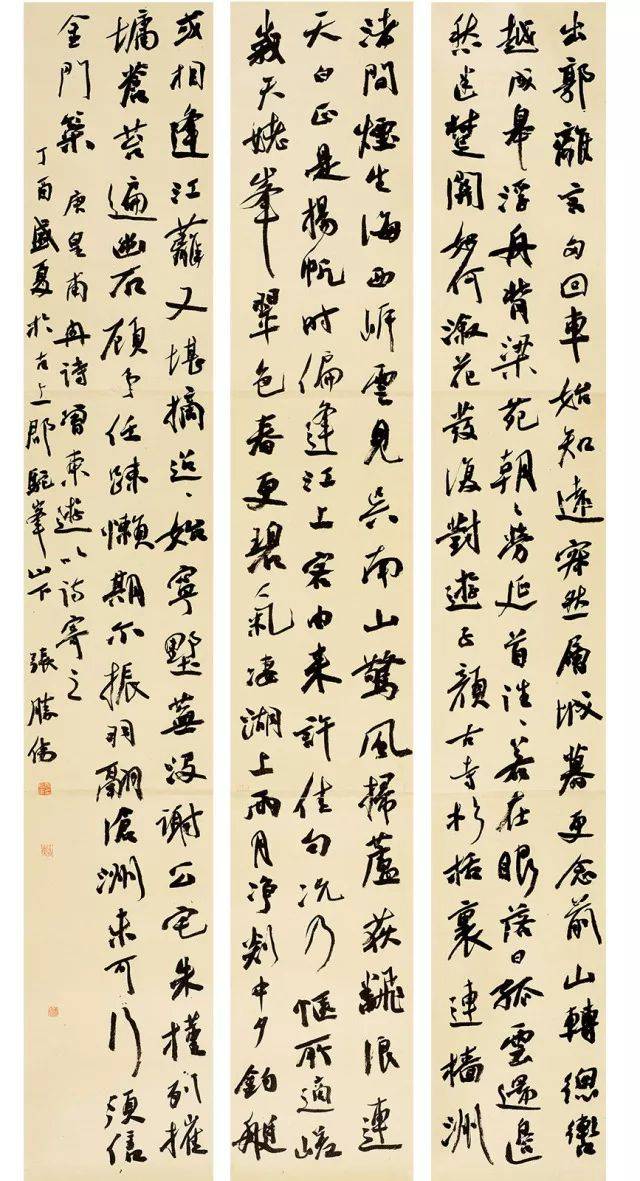 出郭離言多回車始知遠寂然層城暮更念前山轉總轡
越成皋浮舟背梁苑朝〻勞延首往〻若在眼落日孤雲還邊
愁迷楚關如何溆花發復對遊子顏古寺杉栝裏連檣洲
渚間煙生海西岸雲見吳南山驚風掃蘆荻翻浪連
天白正是揚帆時偏逢江上客由來許佳句況乃愜所適嵯
峩天姥峯翠色春更碧氣凄湖上雨月净剡中夕釣艇
或相逢江蘺又堪摘迢〻始寧墅蕪没謝公宅朱槿列摧
墉蒼苔遍幽石顧予任疎懶期尔振羽翮滄洲未可行須售
金門策 唐皇甫冉詩曾東遊以詩寄之
丁酉盛夏於古上郡駝峯山下張勝偉